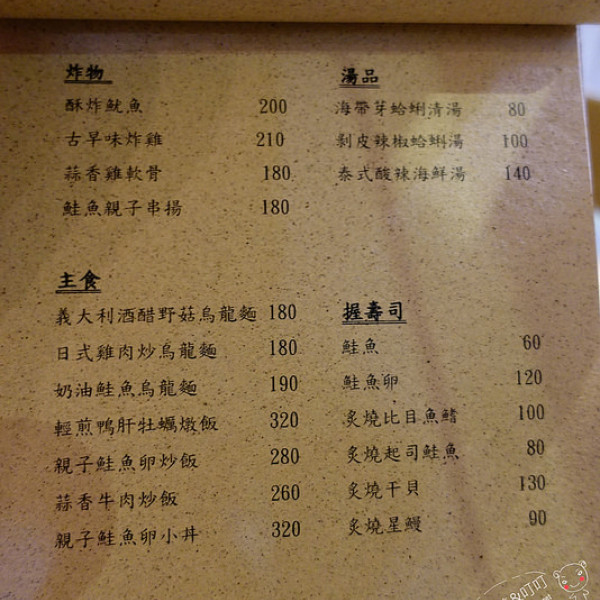 炸物
酥炸魷魚 200
古早味炸雞 210
蒜香雞軟骨 180
鮭魚親子串揚 180
主食
義大利酒醋野菇烏龍麵 180
日式雞肉炒烏龍麵 180
奶油鮭魚烏龍麵 190
輕煎鴨肝牡蠣燉飯 320
親子鮭魚卵炒飯 280
蒜香牛肉炒飯 260
親子鮭魚卵小丼 320
湯品
海帶芽蛤蜊清湯 80
剝皮辣椒蛤蜊湯 100
泰式酸辣海鮮湯 140
握壽司
鮭魚 60
鮭魚卵 120
炙燒比目魚鰭 100
炙燒起司鮭魚 80
炙燒干貝 130
炙燒星鰻 90
&叮叮